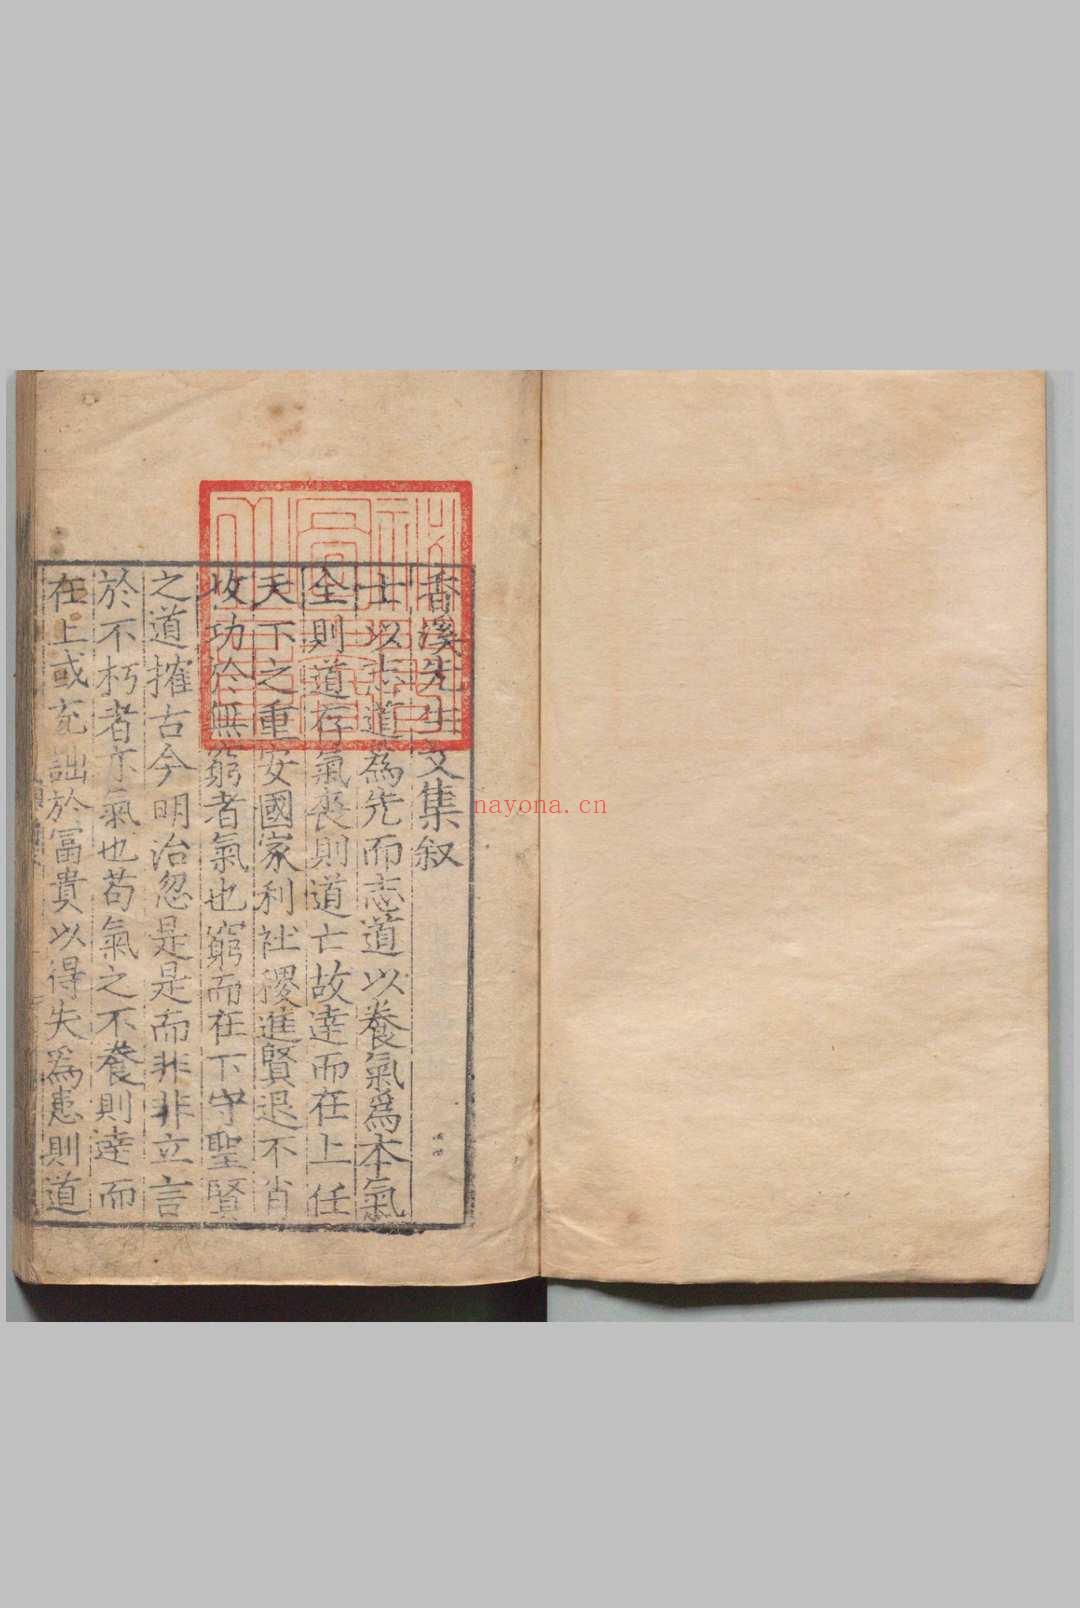 香溪先生文集叙
士以志道為先而志道以養氣爲本氣
全則道存氣喪則道亡故達而在上任
天下之重安國家利社稷進賢退不肖
收功於無窮者氣也窮而在下守聖賢
之道搉古今明治忽是是而非非立言
於不朽者亦氣也苟氣之不養則達而
在上或充詘於冨貴以得失爲患則道
nayona.cn